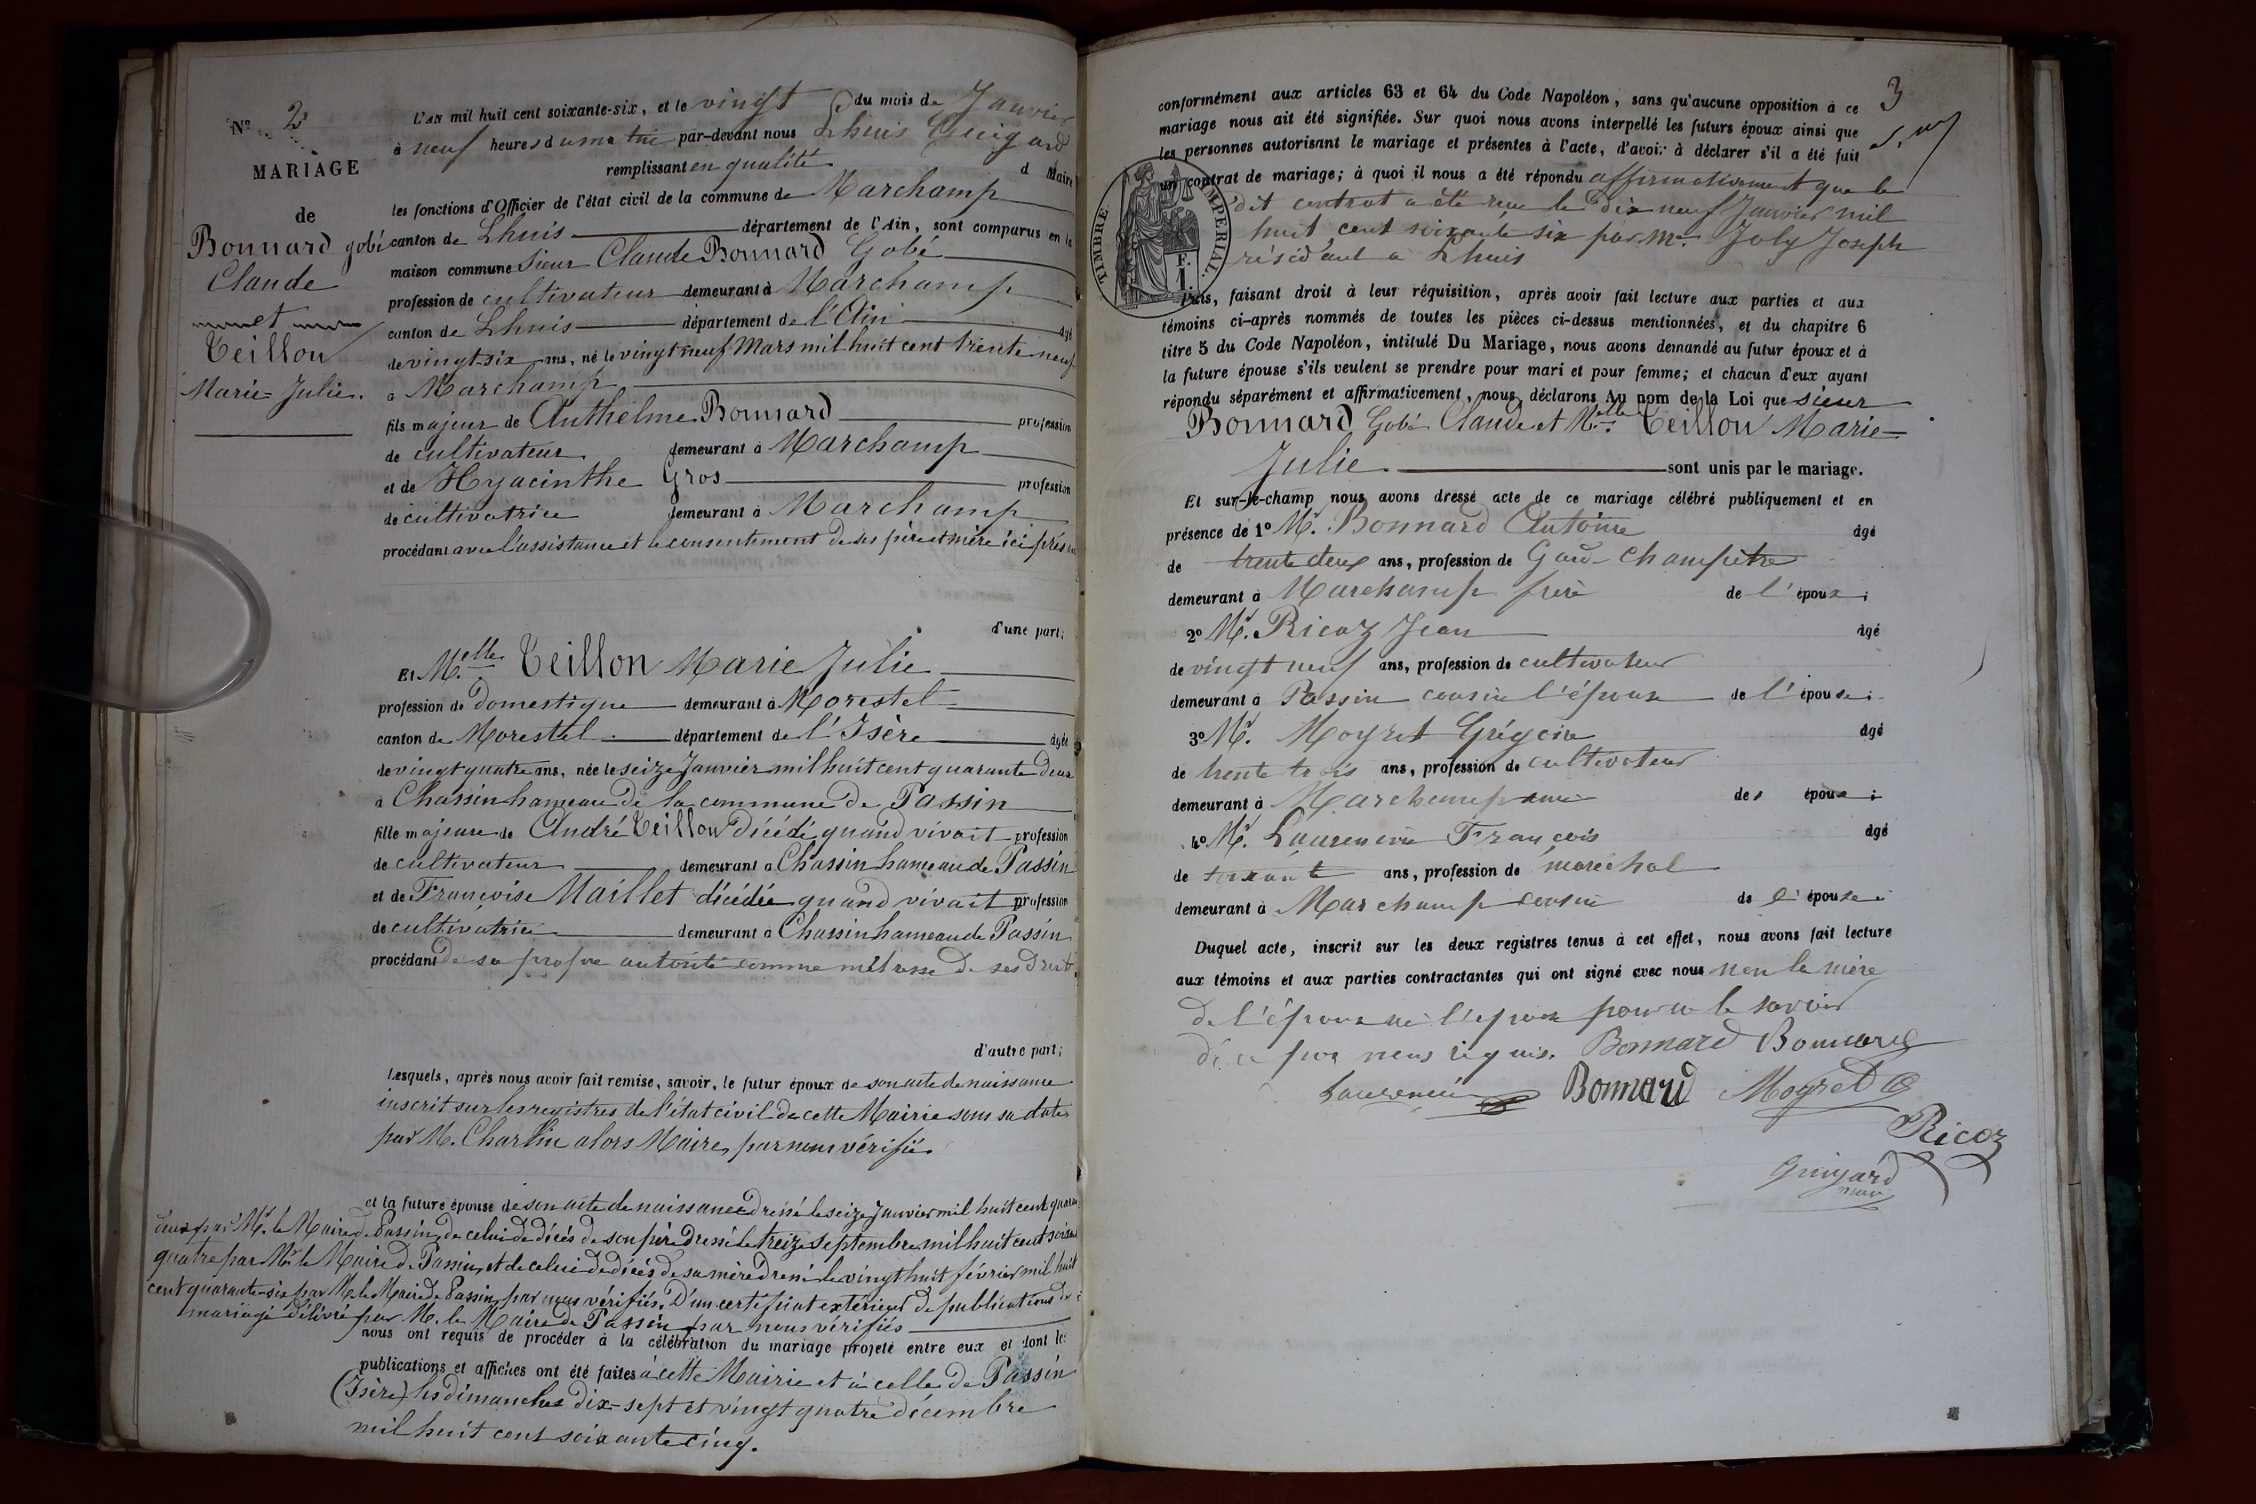 N° 2
MARIAGE
de
Bonnard gobé
Claude
et
Teillon
Marie-Julie.
L'AN mil huit cent soixante-six, et le vingt du mois de Janvier
à neuf heures du matin par-devant nous Lhuis Guigard
remplissant en qualité d Maire
les fonctions d'Officier de l'état civil de la commune de Marchamp
canton de Lhuis département de l'Ain, sont comparus en la
maison commune Sieur Claude Bonnard Gobé
profession de cultivateur demeurant à Marchamp
canton de Lhuis département de l'Ain âgé
de vingt-six ans, né le vingt neuf Mars mil huit cent trente neuf
à Marchamp
fils majeur de Anthelme Bonnard profession
de cultivateur demeurant à Marchamp
et de Hyacinthe Gros profession
de cultivatrice demeurant à Marchamp
procédant avec l'assistance et le consentement de ses père et mère ici présents
d'une part;
Et M.elle Teillon Marie Julie
profession de domestique demeurant à Morestel
canton de Morestel département de l'Isère âgée
de vingt quatre ans, née le seize Janvier mil huit cent quarante deux
à Chassin hameau de la commune de Passin
fille majeure de André Teillon décédé quand vivait profession
de cultivateur demeurant à Chassin hameau de Passin
et de Françoise Maillet décédée quand vivait profession
de cultivatrice demeurant à Chassin hameau de Passin
procédant de sa propre autorité comme maîtresse de ses droits
d'autre part;
Lesquels, après nous avoir fait remise, savoir, le futur époux de son acte de naissance
inscrit sur les registres de l'état civil de cette Mairie sous sa date
par M. Charlin alors Maire, par nous vérifié.
et la future épouse de son acte de naissance dressé le seize Janvier mil huit cent quarante
deux par Mr. le Maire de Passin, de celui de décés de son père dressé le treize septembre mil huit cent soixante
quatre par Mr. le Maire de Passin, et de celui de décés de sa mère dressé le vingt huit février mil huit
cent quarante-six par M. le Maire de Passin, par nous vérifiés. D'un certificat extérieur de publications de
mariage délivré par M. le Maire de Passin par nous vérifiés
nous ont requis de procéder à la célébration du mariage projeté entre eux et dont les
publications et affiches ont été faites à cette Mairie et à celle de Passin
(Isère) les dimanches dix-sept et vingt quatre décembre
mil huit cent soixante cinq.
3
conformément aux articles 63 et 64 du Code Napoléon, sans qu'aucune opposition à ce
mariage nous ait été signifiée. Sur quoi nous avons interpellé les futurs époux ainsi que
les personnes autorisant le mariage et présentes à l'acte, d'avoir à déclarer s'il a été fait
un contrat de mariage; à quoi il nous a été répondu affirmativement que le
dit contrat a été reçu le dix neuf Janvier mil
huit cent soixante six par Me. Joly Joseph
résidant à Lhuis
TIMBRE IMPERIAL.
1 F.
Puis, faisant droit à leur réquisition, après avoir fait lecture aux parties et aux
témoins ci-après nommés de toutes les pièces ci-dessus mentionnées, et du chapitre 6
titre 5 du Code Napoléon, intitulé Du Mariage, nous avons demandé au futur époux et à
la future épouse s'ils veulent se prendre pour mari et pour femme; et chacun d'eux ayant
répondu séparément et affirmativement, nous déclarons Au nom de la Loi que sieur
Bonnard Gobé Claude et M.elle Teillon Marie
Julie sont unis par le mariage.
Et sur-le-champ nous avons dressé acte de ce mariage célébré publiquement et en
présence de 1° Mr. Bonnard Antoine âgé
de trente deux ans, profession de Gard-Champetre
demeurant à Marchamp frère de l'époux;
2° Mr. Ricoz Jean âgé
de vingt neuf ans, profession de cultivateur
demeurant à Passin cousin l'épouse de l'épouse;
3° Mr. Moyret Grégoire âgé
de trente trois ans, profession de cultivateur
demeurant à Marchamp ami des époux;
4° Mr. Laurencin François âgé
de soixante ans, profession de maréchal
demeurant à Marchamp cousin de l'épouse.
Duquel acte, inscrit sur les deux registres tenus à cet effet, nous avons fait lecture
aux témoins et aux parties contractantes qui ont signé avec nous non la mère
de l'époux ni l'épouse pour ne le savoir
de ce par nous requis. Bonnard Bonnard
Laurencin Bonnard Moyret
Ricoz
Guigard
maire